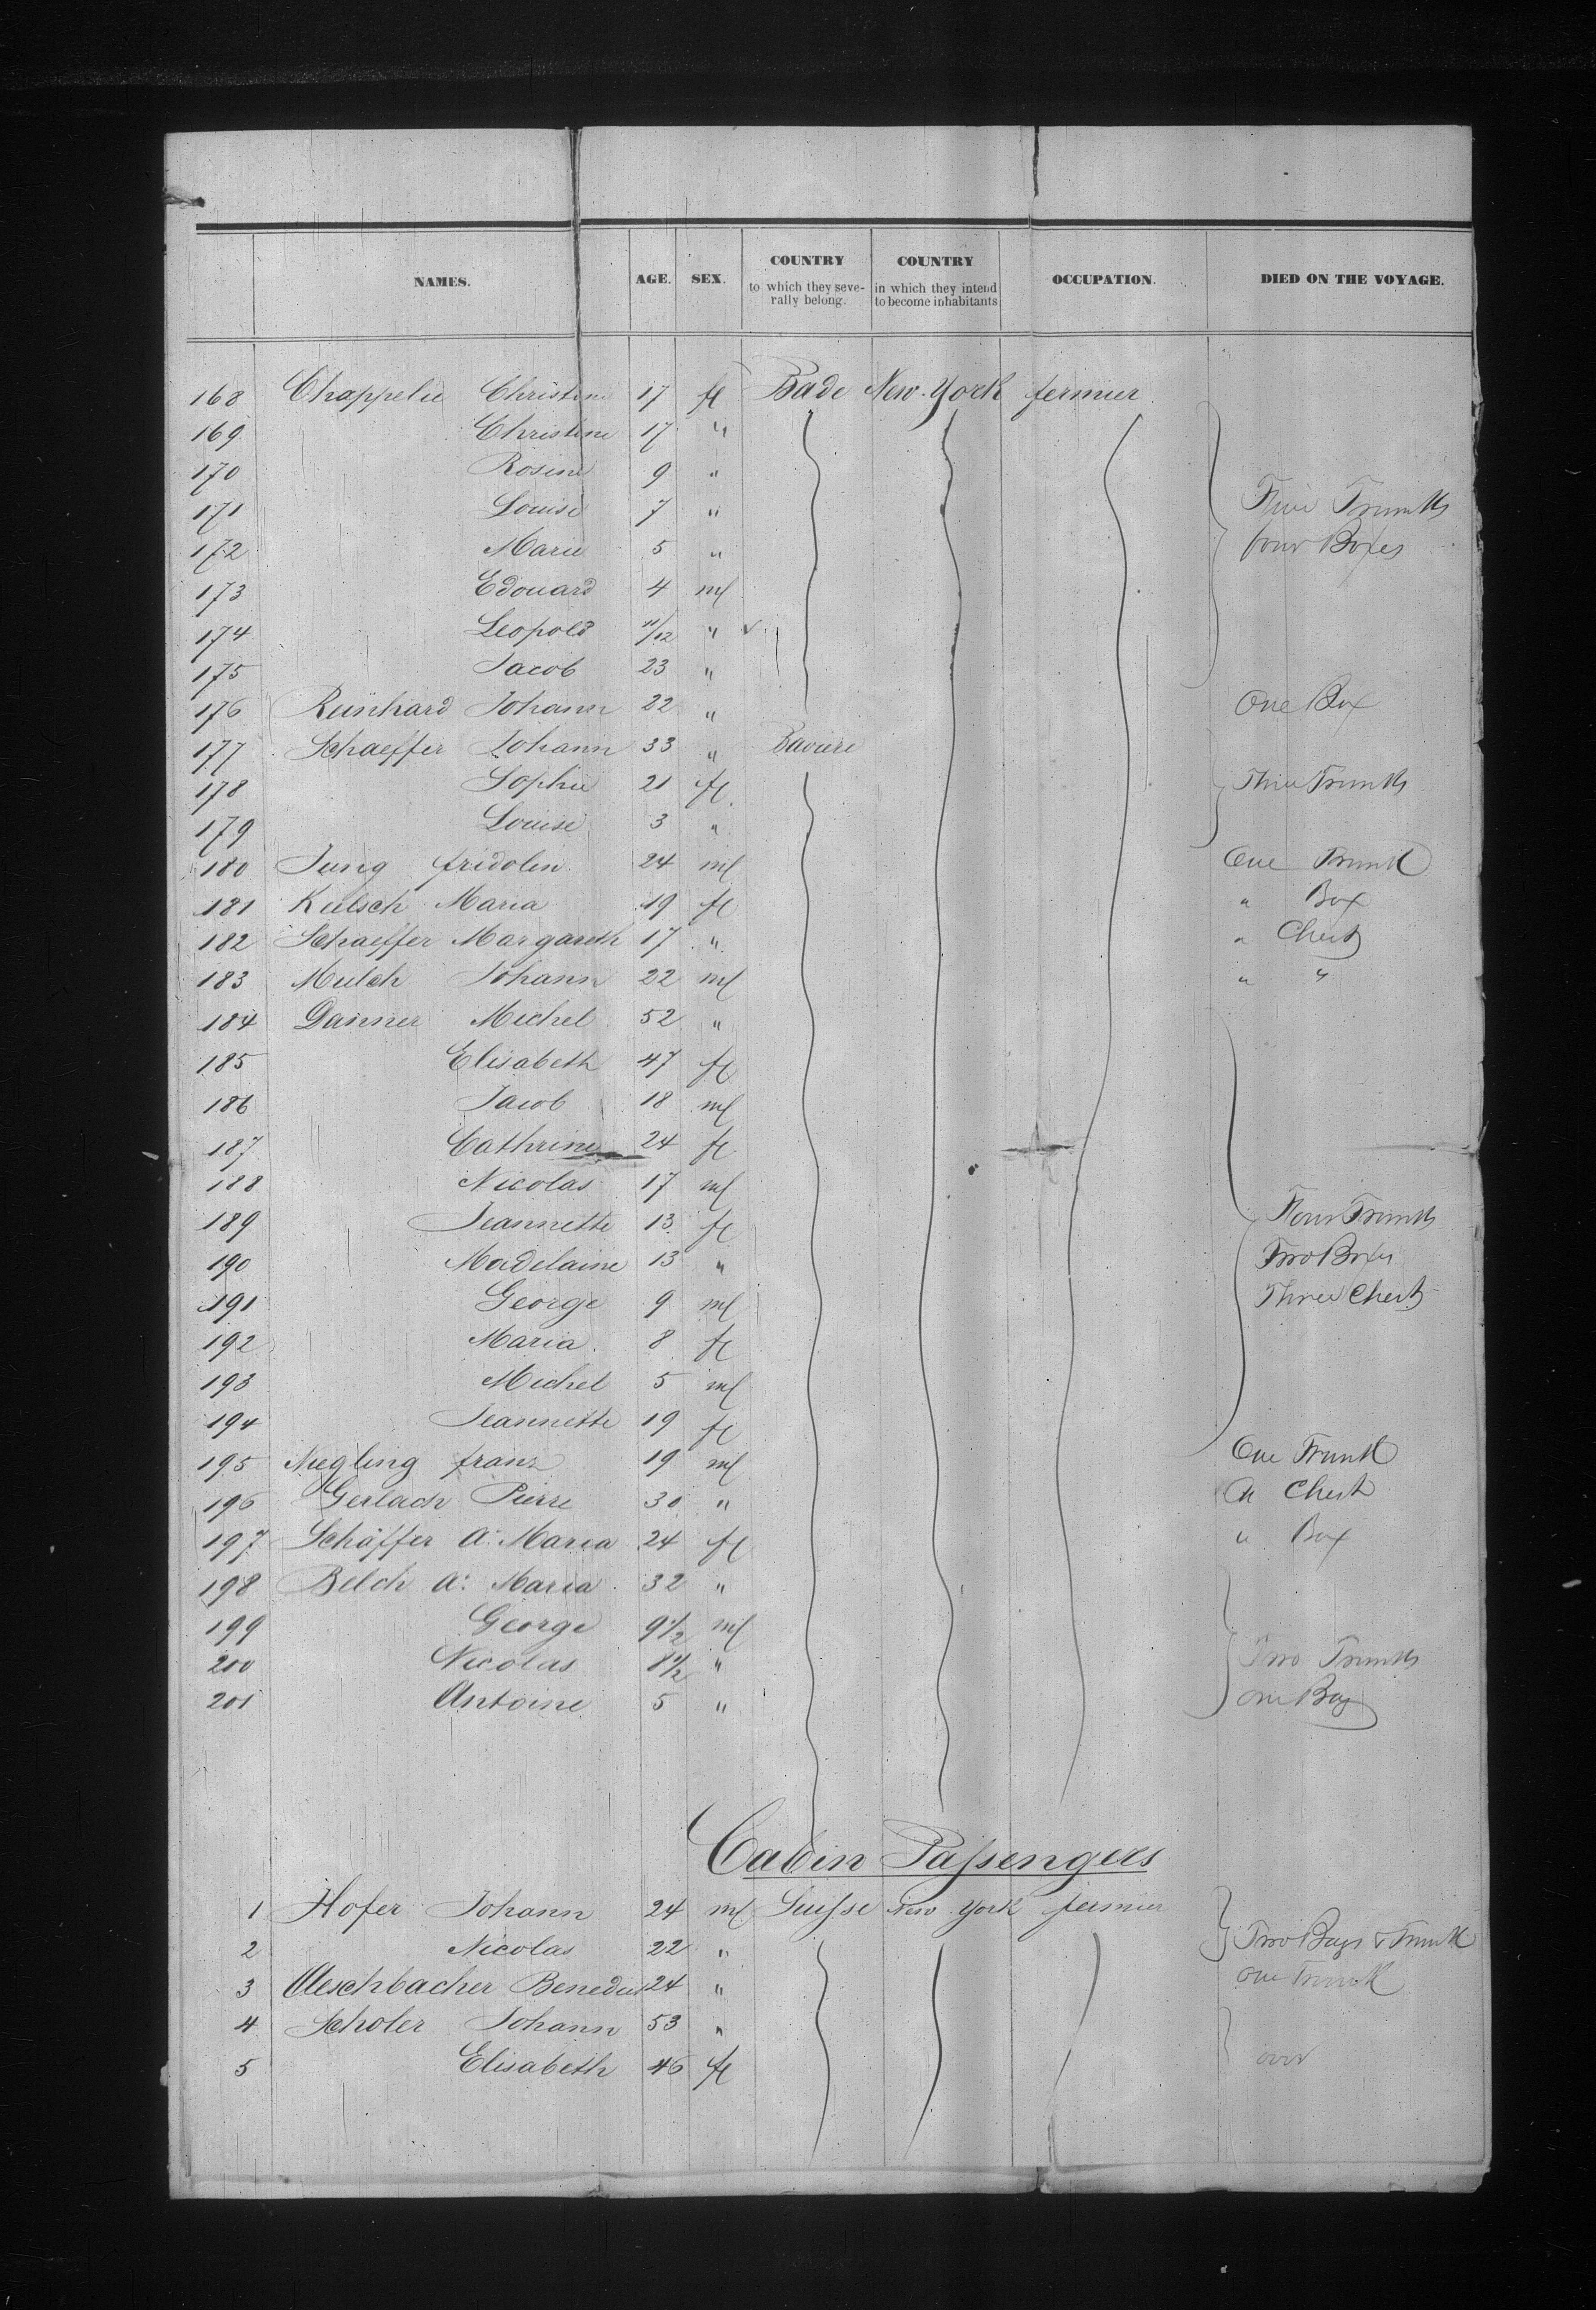 NAMES. AGE. SEX. COUNTRY to which they seve-rally belong. COUNTRY in which they intend to become inhabitants OCCUPATION. DIED ON THE VOYAGE.
168 Chappelie Christine 17 fl Bade New-York fermier
169 Christine 17 "
170 Rosine 9 "
171 Louise 7 " Trunks
172 Marie 5 " four Boxes
173 Edouard 4 ml
174 Leopold 11/12 "
175 Jacob 23 "
176 Reinhard Johann 22 " One Box
177 Schaeffer Johann 33 " Baviere
178 Sophie 21 fl Three Trunks
179 Louise 3 "
180 Jung fridolin 24 ml One Trunk
181 Kulsch Maria 19 fl " Box
182 Schaeffer Margareth 17 " " Chest
183 Mulch Johann 22 ml " "
184 Danner Michel 52 "
185 Elisabeth 47 fl
186 Jacob 18 ml
187 Cathrine 24 fl
188 Nicolas 17 ml
189 Jeannette 13 fl Four Trunks
190 Madelaine 13 " Two Boxes
191 George 9 ml Three Chests
192 Maria 8 fl
193 Michel 5 ml
194 Jeannette 19 fl
195 Niegling franz 19 ml One Trunk
196 Gerlach Pierre 30 " Chest
197 Schäffer A: Maria 24 fl " Box
198 Belch A: Maria 32 "
199 George 9 1/2 ml
200 Nicolas 8 1/2 " Two Trunks
201 Antoine 5 " One Bag
Cabin Passengers
1 Hofer Johann 24 ml Suisse New York fermier
2 Nicolas 22 " Two Bags & Trunk
3 Aeschbacher Benedict 24 " One Trunk
4 Scholer Johann 53 "
5 Elisabeth 46 fl over